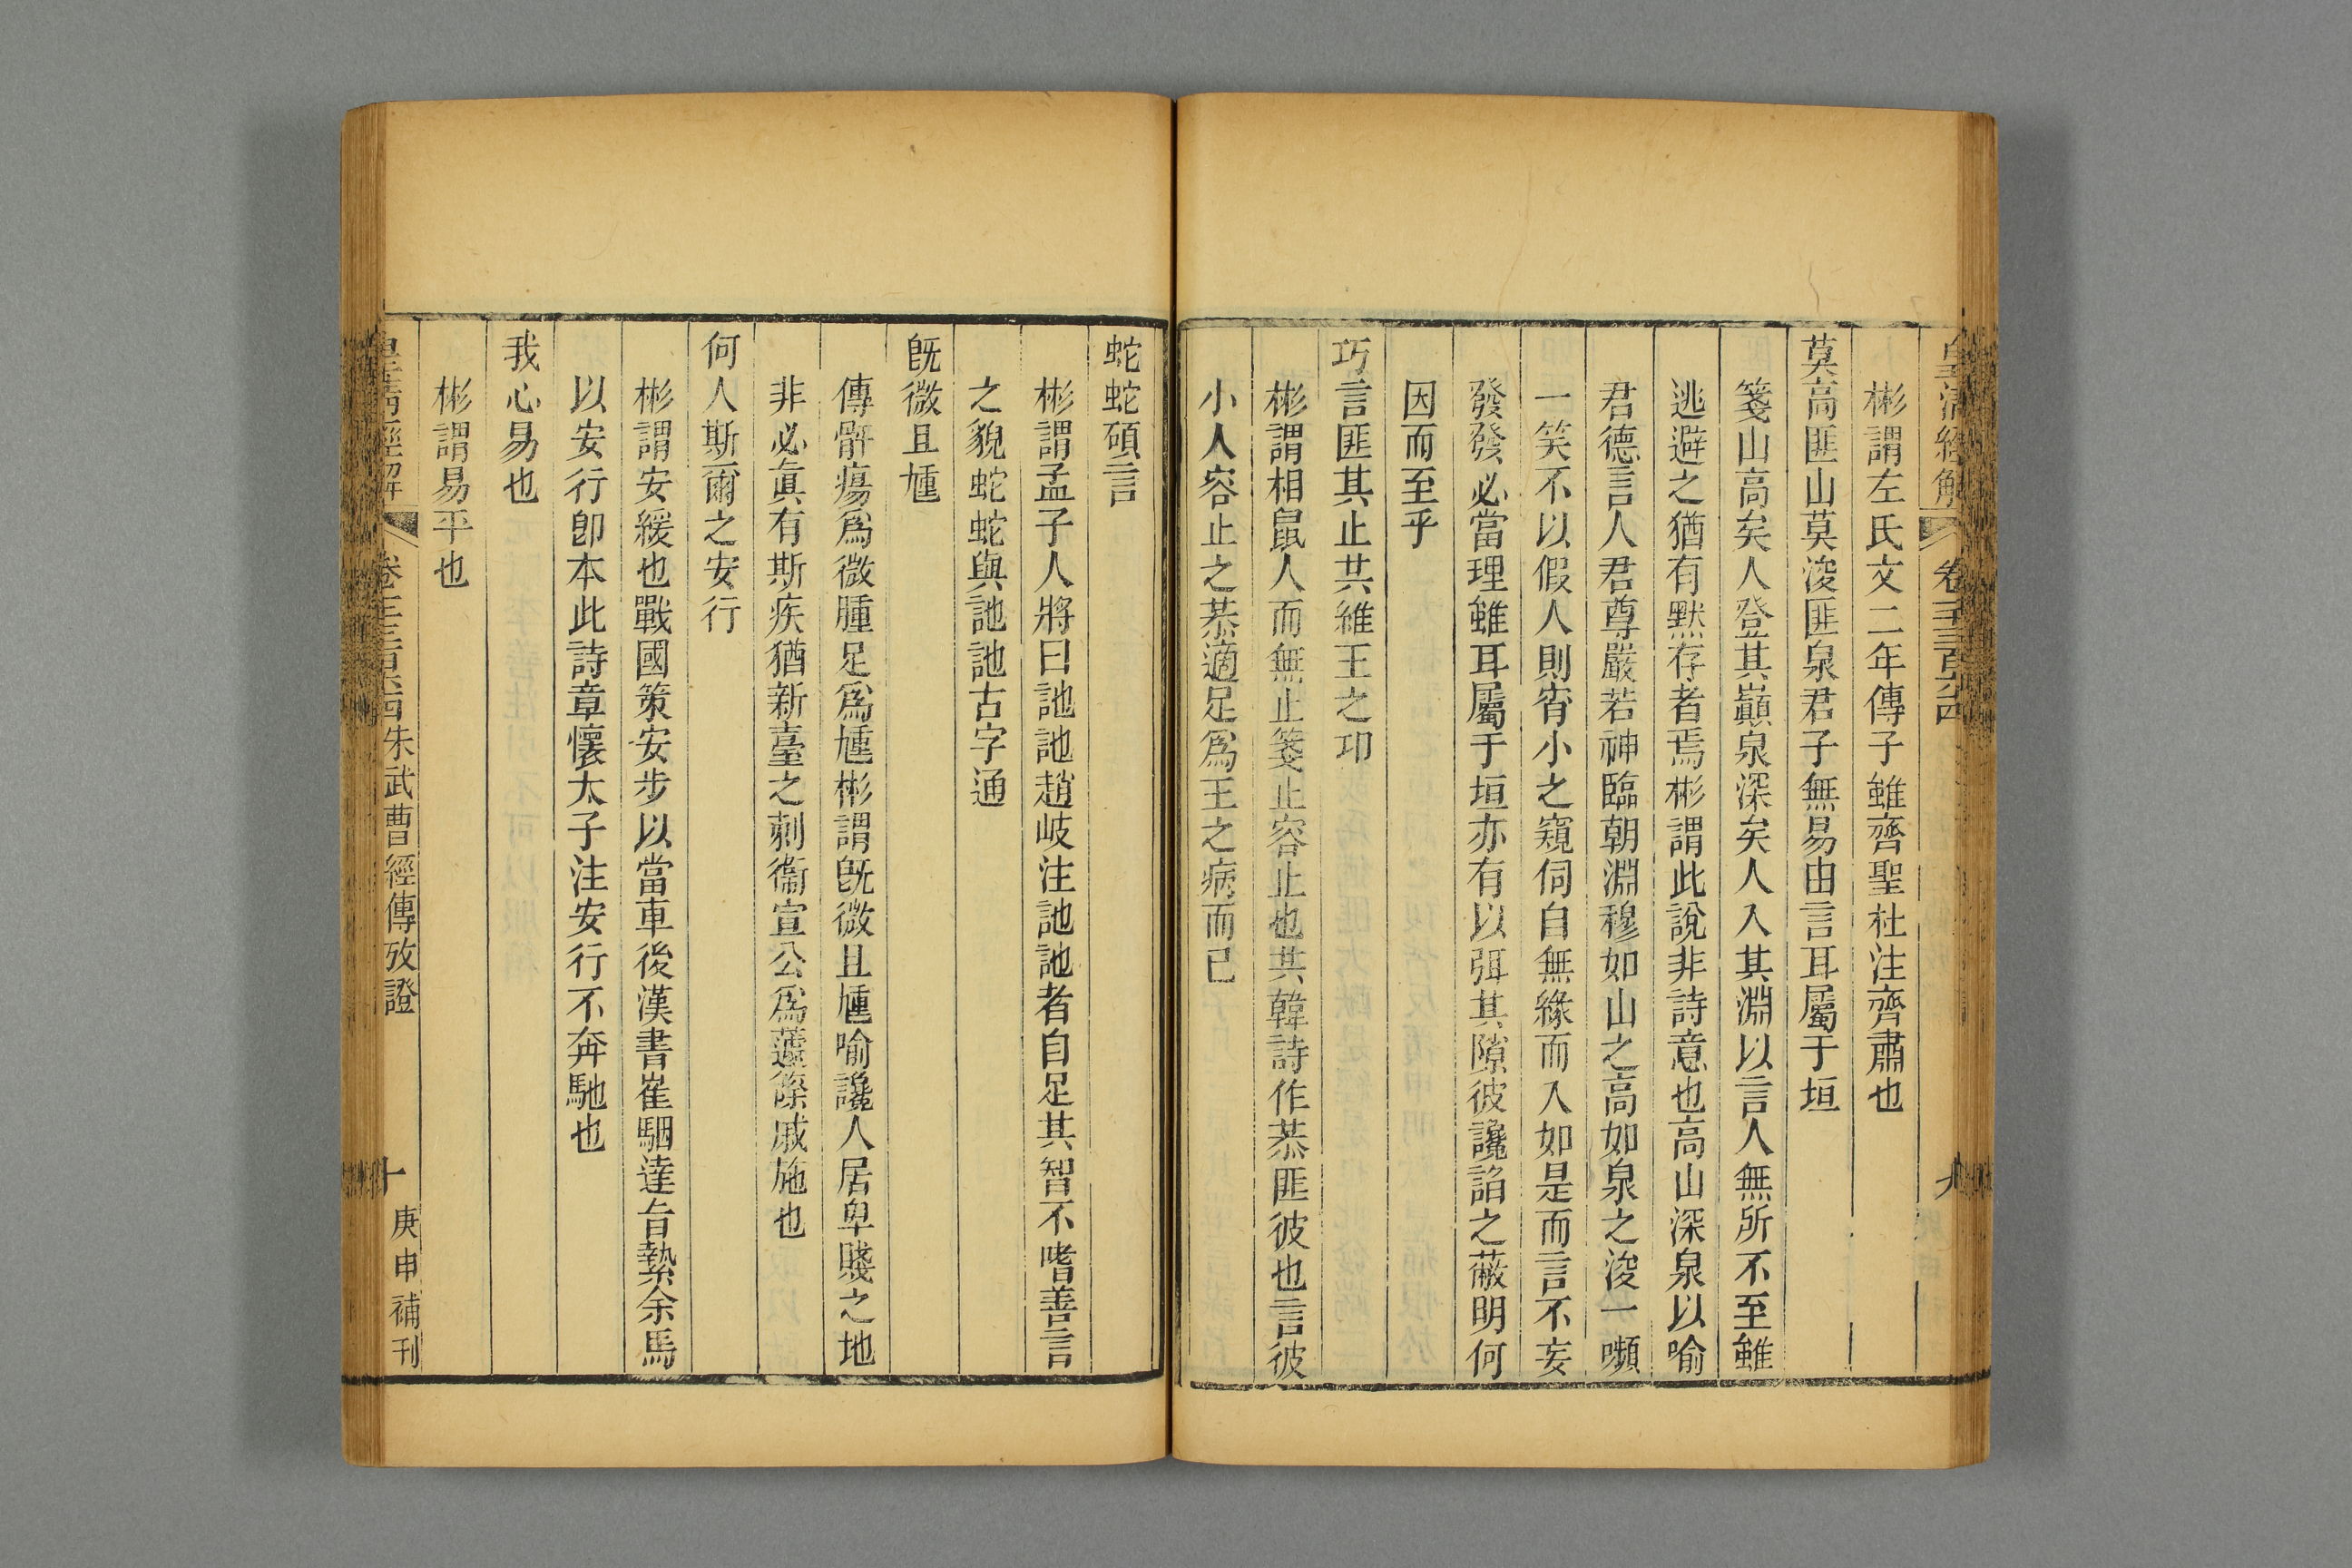 皇清經解
九
彬謂左氏文二年傳子雖齊聖杜注齊肅也
莫高匪山莫浚匪泉君子無易由言耳屬于垣
箋山高矣人登其巔泉深矣人入其淵以言人無所不至雖
逃避之猶有默存者焉彬謂此說非詩意也高山深泉以喻
君德言人君尊嚴若神臨朝淵穆如山之高如泉之浚一嚬
一笑不以假人則宵小之窺伺自無緣而入如是而言不妄
發發必當理雖耳屬于垣亦有以弭其隙彼讒諂之蔽明何
因而至乎
巧言匪其止共維王之卭
彬謂相鼠人而無止箋止容止也共韓詩作恭匪彼也言彼
小人容止之恭適足爲王之病而已
蛇蛇碩言
彬謂孟子人將曰訑訑趙岐注訑訑者自足其智不嗜善言
之貌蛇蛇與訑訑古字通
旣微且尰
傳骭瘍爲微腫足爲尰彬謂旣微且尰喻讒人居卑賤之地
非必眞有斯疾猶新臺之刺衞宣公爲蘧篨戚施也
何人斯爾之安行
彬謂安緩也戰國策安步以當車後漢書崔駰達旨縶余馬
以安行卽本此詩章懷太子注安行不奔馳也
我心易也
彬謂易平也
皇淸經解
朱武曹經傳攷證
十
庚申補刊